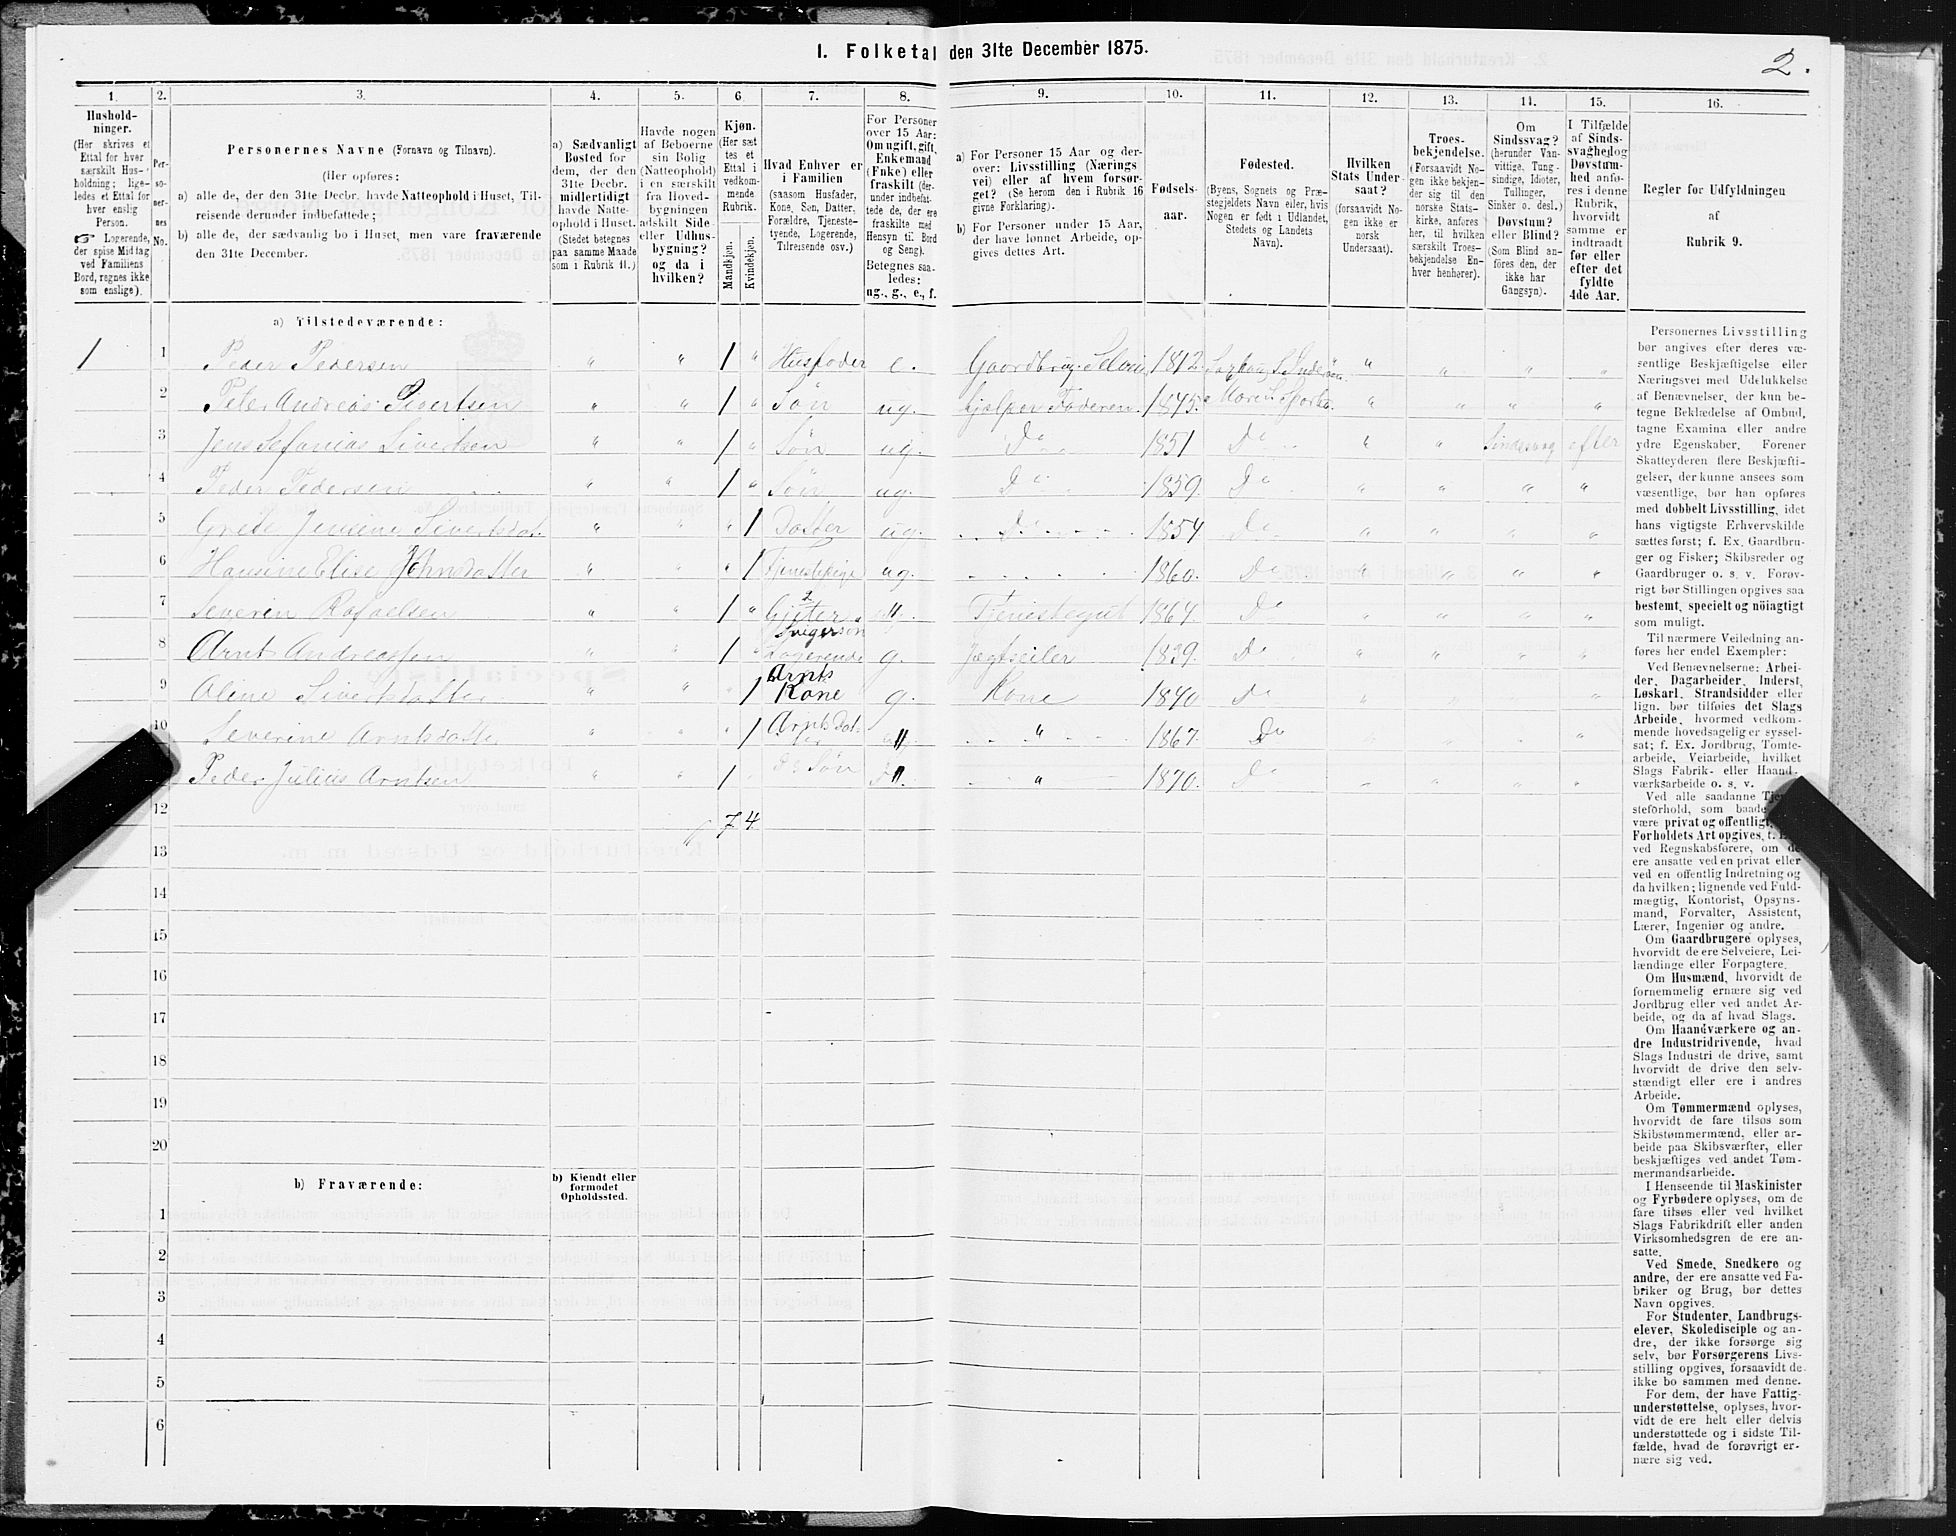 I. Folketal den 31te December 1875.
2.
1. 2. 3. 4. 5. 6. 7. 8. 9. 10. 11. 12. 13. 14. 15. 16.
Hushold-
ninger.
(Her skrives et
Ettal for hver
særskilt Hus-
holdning; lige-
ledes et Ettal for
hver enslig
Person.
☞ Logerende,
der spise Middag
ved Familiens
Bord, regnes ikke
som enslige).
Per-
so-
ner-
nes
No.
Personernes Navne (Fornavn og Tilnavn).
(Her opføres:
a) alle de, der den 31te Decbr. havde Natteophold i Huset, Til-
reisende derunder indbefattede;
b) alle de, der sædvanlig bo i Huset, men vare fraværende
den 31te December.
a) Sædvanligt
Bosted for
dem, der den
31te Decbr.
midlertidigt
havde Natte-
ophold i Huset.
(Stedet betegnes
paa samme Maade
som i Rubrik 11.)
Havde nogen
af Beboerne
sin Bolig
(Natteophold)
i en særskilt
fra Hoved-
bygningen
adskilt Side-
eller Udhus-
bygning?
og da i
hvilken?
Kjøn.
(Her sæt-
tes et
Ettal i
vedkom-
mende
Rubrik.
Mandkjøn.
Kvindekjøn.
Hvad Enhver er
i Familien
(saasom Husfader,
Kone, Søn, Datter,
Forældre, Tjeneste-
tyende, Logerende,
Tilreisende osv.)
For Personer
over 15 Aar:
Om ugift, gift,
Enkemand
(Enke) eller
fraskilt (der-
under indbefat-
tede de, der ere
fraskilte med
Hensyn til Bord
og Seng).
Betegnes saa-
ledes:
ug., g., e., f.
a) For Personer 15 Aar og der-
over: Livsstilling (Nærings-
vei) eller af hvem forsør-
get? (Se herom den i Rubrik 16
givne Forklaring).
b) For Personer under 15 Aar,
der have lønnet Arbeide, op-
gives dettes Art.
Fødsels-
aar.
Fødested.
(Byens, Sognets og Præ-
stegjeldets Navn eller, hvis
Nogen er født i Udlandet,
Stedets og Landets
Navn).
Hvilken
Stats Under-
saat?
(forsaavidt No-
gen ikke er
norsk
Undersaat).
Troes-
bekjendelse.
(Forsaavidt No-
gen ikke bekjen-
der sig til den
norske Stats-
kirke, anføres
her, til hvilken
særskilt Troes-
bekjendelse En-
hver henhører).
Om
Sindssvag?
(herunder Van-
vittige, Tung-
sindige, Idioter,
Tullinger,
Sinker o. desl.)
Døvstum?
eller Blind?
(Som Blind an-
føres den, der
ikke har
Gangsyn).
I Tilfælde
af Sinds-
svaghed og
Døvstum-
hed anfø-
res i denne
Rubrik,
hvorvidt
samme er
indtraadt
før eller
efter det
fyldte
4de Aar.
Regler for Udfyldningen
af
Rubrik 9.
a) Tilstedeværende:
1 1 Peder Pedersen " " 1 " Husfader e. Gaardbrug. Seleier 1812 "
2 Peter Andreas Sivertsen " " 1 " Søn ug. hjelper Faderen. 1845 "
3 Jens Stefanias Sivertsen " " 1 " Søn ug. Do 1851 Do " " Sindssvag efter
4 Peder Pedersen " " 1 " Søn ug. Do 1859. Do " " " "
5 Grete Jensine Sivertsdat. " " " 1 Datter ug. Do 1854 Do " " " "
6 Hansine Elise Johnsdatter " " " 1 Tjenestepige ug. 1860. Do " " " "
7 Severin Rafaelsen " " 1 " Gjeter " Tjenestegut 1864. Do " " " "
8 Arnt Andreassen " " 1 " Svigersøn Logerende g. Jægtseiler 1839. Do " " " "
9 Oline Sivertsdatter " " " 1 Arnts Kone g. Kone 1840 Do " " " "
10 Severine Arntsdatter " " " 1 Arnts Datter " " 1867. Do " " " "
Peder Julius Arntsen " " 1 Do Søn " " 1870. Do " " " "
12 7 4
13
14
15
16
17
18
19
20
b) Fraværende:
b) Kjendt eller
formodet
Opholdssted.
1
2
3
4
5
6
Personernes Livsstilling
bør angives efter deres væ-
sentlige Beskjæftigelse eller
Næringsvei med Udelukkelse
af Benævnelser, der kun be-
tegne Beklædelse af Ombud,
tagne Examina eller andre
ydre Egenskaber. Forener
Skatteyderen flere Beskjæfti-
gelser, der kunne ansees som
væsentlige, bør han opføres
med dobbelt Livsstilling, idet
hans vigtigste Erhvervskilde
sættes først; f. Ex. Gaardbru-
ger og Fisker; Skibsreder og
Gaardbruger o. s. v. Forøv-
rigt bør Stillingen opgives saa
bestemt, specielt og nöiagtigt
som muligt.
Til nærmere Veiledning an-
føres her endel Exempler:
Ved Benævnelserne: Arbei-
der, Dagarbeider, Inderst,
Løskarl, Strandsidder eller
lign. bør tilføies det Slags
Arbeide, hvormed vedkom-
mende hovedsagelig er syssel-
sat; f. Ex. Jordbrug, Tomte-
arbeide, Veiarbeide, hvilket
Slags Fabrik- eller Haand-
værksarbeide o. s. v.
Ved alle saadanne Tjene-
steforhold, som baade
være privat og offentligt,
Forholdets Art opgives, f. Ex.
ved Regnskabsførere, om de
ere ansatte ved en privat eller
ved en offentlig Indretning og
da hvilken; lignende ved Fuld-
mægtig, Kontorist, Opsyns-
mand, Forvalter, Assistent,
Lærer, Ingeniør og andre.
Om Gaardbrugere oplyses,
hvorvidt de ere Selveiere, Lei-
lændinge eller Forpagtere.
Om Husmænd, hvorvidt de
fornemmelig ernære sig ved
Jordbrug eller ved andet Ar-
beide, og da af hvad Slags.
Om Haandværkere og an-
dre Industridrivende, hvad
Slags Industri de drive, samt
hvorvidt de drive den selv-
stændigt eller ere i andres
Arbeide.
Om Tømmermænd oplyses,
hvorvidt de fare tilsøs som
Skibstømmermænd, eller ar-
beide paa Skibsværfter, eller
beskjæftiges ved andet Tøm-
mermandsarbeide.
I Henseende til Maskinister
og Fyrbødere oplyses, om de
fare tilsøs eller ved hvilket
Slags Fabrikdrift eller anden
Virksomhedsgren de ere an-
satte.
Ved Smede, Snedkere og
andre, der ere ansatte ved Fa-
briker og Brug, bør dettes
Navn opgives.
For Studenter, Landbrugs-
elever, Skoledisciple og an-
dre, der ikke forsørge sig
selv, bør Forsørgerens Livs-
stilling opgives, forsaavidt de
ikke bo sammen med denne.
For dem, der have Fattig-
understøttelse, oplyses, hvor-
vidt de ere helt eller delvis
understøttede og i sidste Til-
fælde, hvad de forøvrigt er-
nære sig ved.